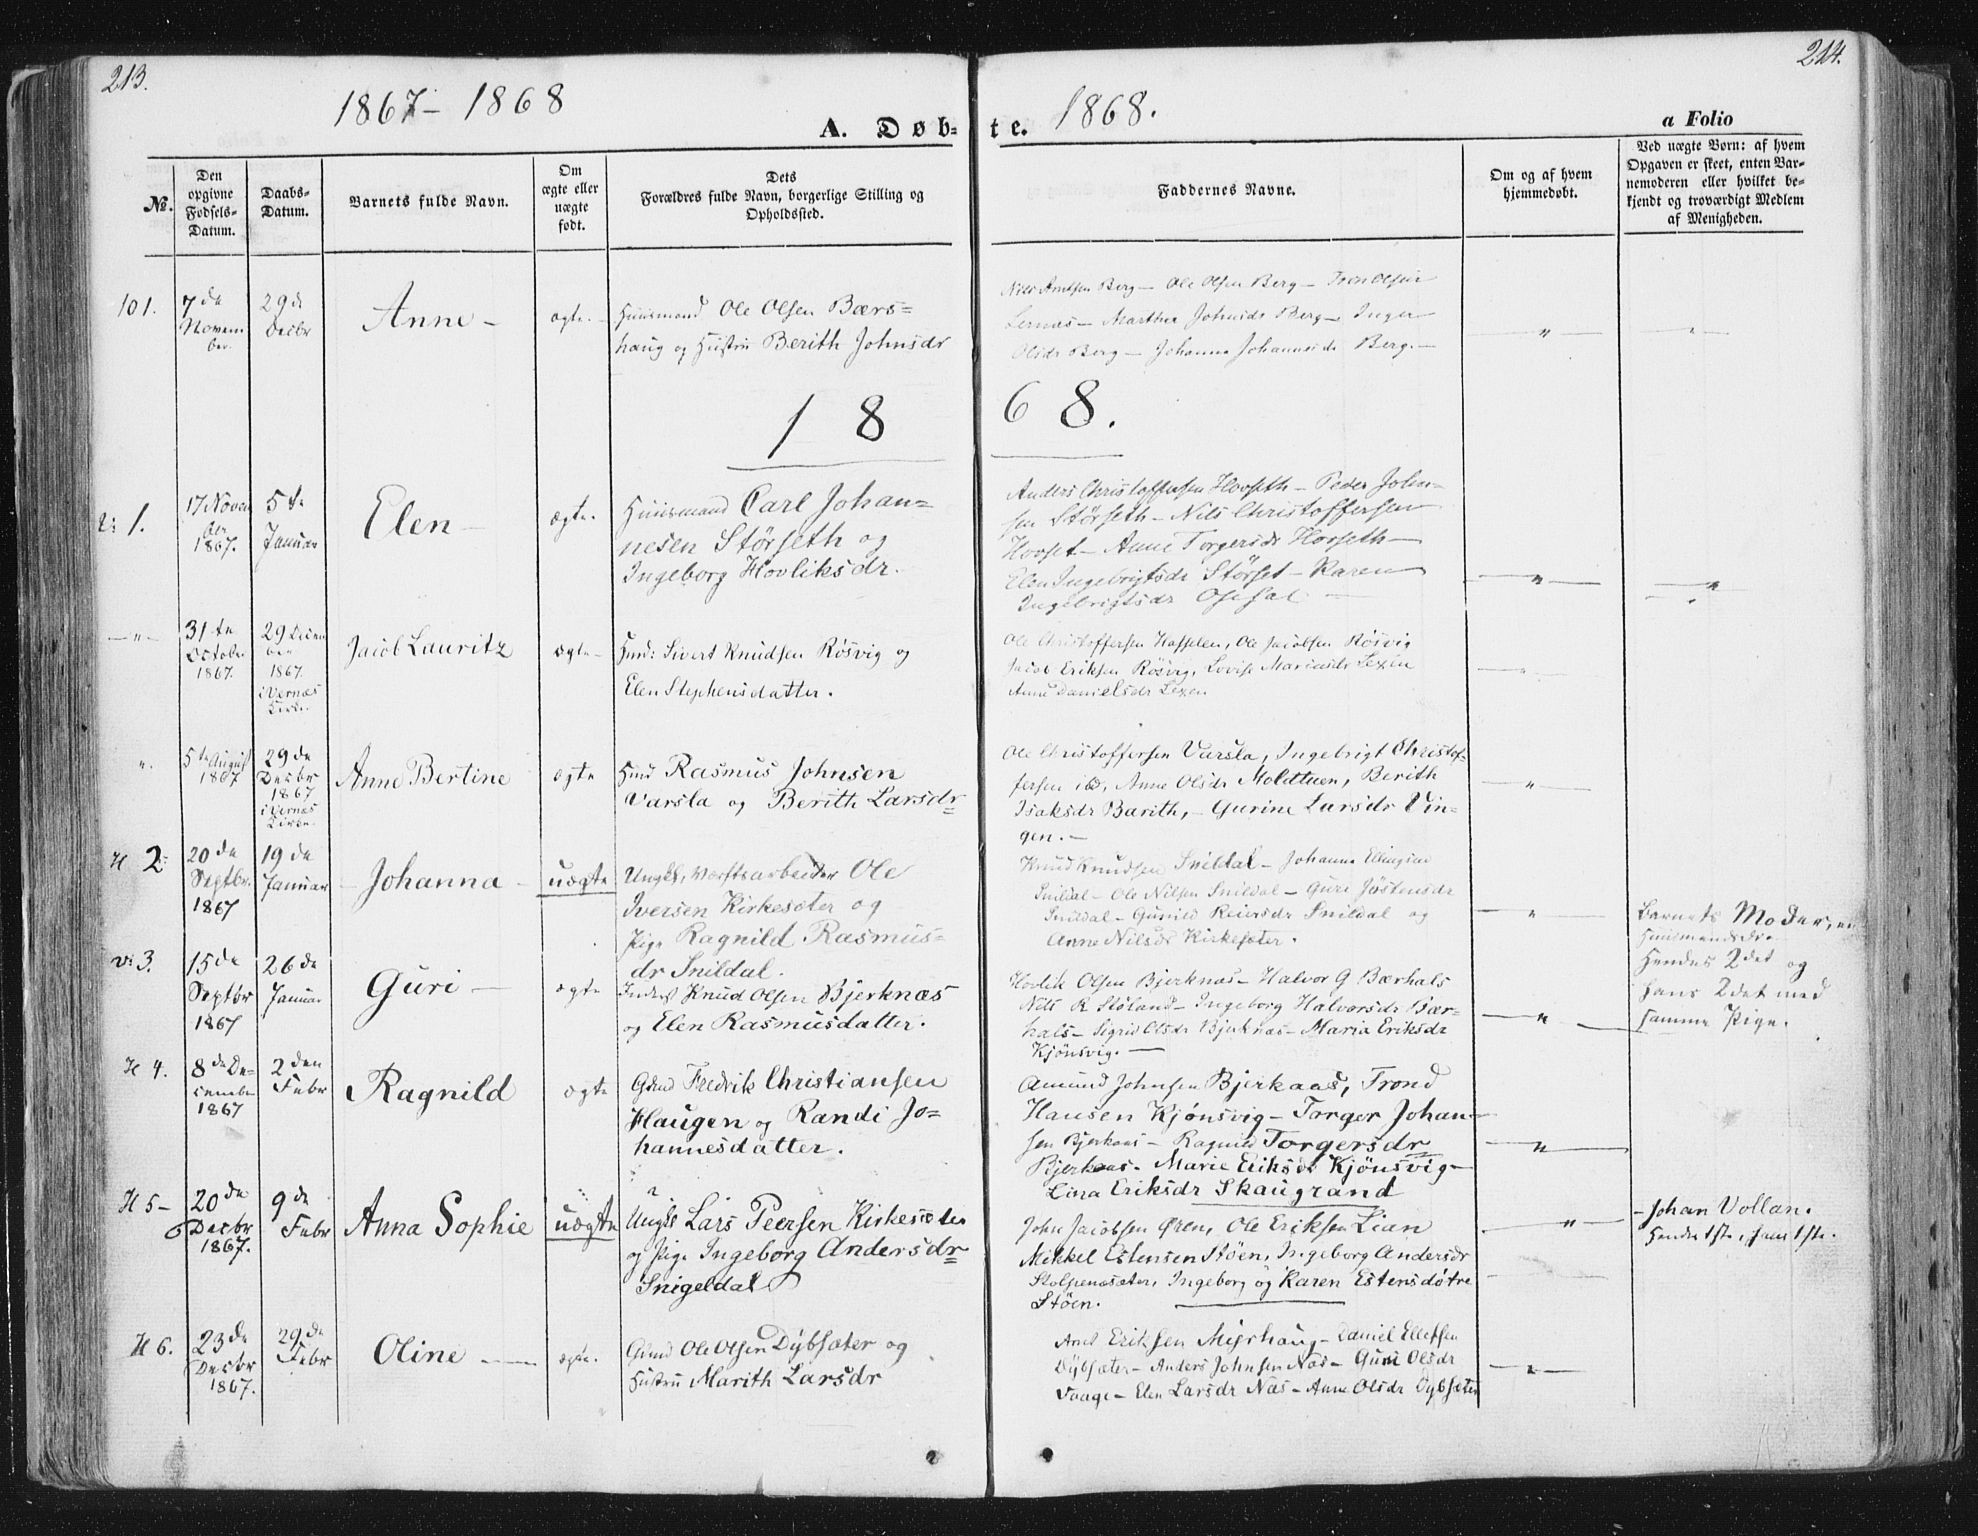 213.
214.
1867-1868
1868.
A. Døb-
te.
a Folio
No.
Den opgivne Fødsels-Datum.
Daabs-Datum.
Barnets fulde Navn.
Om ægte eller uægte født.
Dets
Forældres fulde Navn, borgerlige Stilling og Opholdssted.
Faddernes Navne.
Om og af hvem hjemmedøbt.
Ved uægte Børn: af hvem Opgaven er skeet, enten Barnemoderen eller hvilket bekjendt og troværdigt Medlem af Menigheden.
101.
7de November
29de Decbr
Anne -
ægte. -
Huusmand Ole Olsen Bærs=
haug og Hustru Berith Johnsdr
Berg - Ole Olsen Berg -
Marthe Johnsdr Berg - Inger
Olsdr Berg - Johanna Johannesdr Berg. -
1 8
6 8.
1.
17 Novem
ber
1867.
5te
Januar
Elen -
ægte.
Huusmand Carl Johan=
nesen Störseth og
Ingeborg Hovliksdr.
Anders Christoffersen Hovseth - Peder John=
sen Störseth - Nils Christoffersen
Hovset - Anne Torgersdr Hovseth -
Elen Ingebrigtsdr Störset - Karen
Ingebrigtsdr
31te
October
1867.
29 Decem
ber
1867.
i Vernæs
Kirke.
Jacob Lauritz
ægte -
Sivert Knudsen Rösvig og
Elen Stephensdatter.
Ole Christoffersen Hasselen, Ole Jacobsen Rösvig
Jacob Eriksen Rösvig, Lovise Mariusdr Lexen
Anne Danielsdr Lexen
5te August
1867
29de
Decbr
1867
i Vernæs
Kirke.
Anne Bertine
ægte
Rasmus Johnsen
Varsla og Berith Larsdr
Ole Christoffersen Varsla, Ingebrigt Christof=
fersen ibd, Anne Olsdr Moldtuen, Berith
Isaksdr Barith, - Gurine Larsdr Vin=
gen. -
H 2
20de
Septbr.
1867
19de
Januar
Johanna -
uægte
Ungk. Værftsarbeider Ole
Iversen Kirkesæter og
Pige Ragnild Rasmus=
dr Snildal.
Knud Knudsen Snildal - Johanna
Snildal - Ole Nilsen Snildal - Guri Jöstensdr
Snildal - Gunild Reiersdr Snildal og
Anne Nilsdr Kirkesæter.
Barnets Moder, en
Huusmandsdr.
Hendes 2det og
hans 2det med
samme Pige.
3.
15de
Septbr
1867
26de
Januar
Guri -
ægte
Knud Olsen Bjerknæs
og Elen Rasmusdatter.
Hovlik Olsen Bjerknæs - Halvor G Bærhals
Nils R Stöland - Ingeborg Halvorsdr Bær=
hals - Sigrid Olsdr Bjerknæs - Maria Eriksdr
Kjönsvig. -
H 4.
8de De=
cember
1867
2den
Febr
Ragnild
ægte
Gmd Fredrik Christiansen
Haugen og Randi Jo=
hannesdatter.
Amund Johnsen Bjerkaas, Trond
Hansen Kjönsvig - Torger Johan=
sen Bjerkaas - Ragnild Torgersdr
Bjerkaas - Marie Eriksdr Kjönsvig -
Lina Eriksdr Skaugrand
H 5 -
20de
Decbr
1867.
9de
Febr
Anna Sophie
uægte
Ungk Lars Peersen Kirkesæter
og Pige Ingeborg Andersdr
Snigeldal
John Jacobsen Ören, Ole Eriksen Lian
Mikkel Estensen Stöen, Ingeborg Andersdr
Stolpenæsæter, Ingeborg og Karen Estensdötre
Stöen.
- Johan Vollan.
Hendes 1ste, hans 1ste.
H 6.
23de
Decbr
1867.
29de
Febr
Oline -
ægte.
Gmd Ole Olsen Dybsæter og
Hustru Marith Larsdr
Eriksen - Daniel Ellefsen
Dybsæter - Anders Johnsen Næs - Guri Olsdr
Vaage - Elen Larsdr Næs - Anne Olsdr Dybsæter